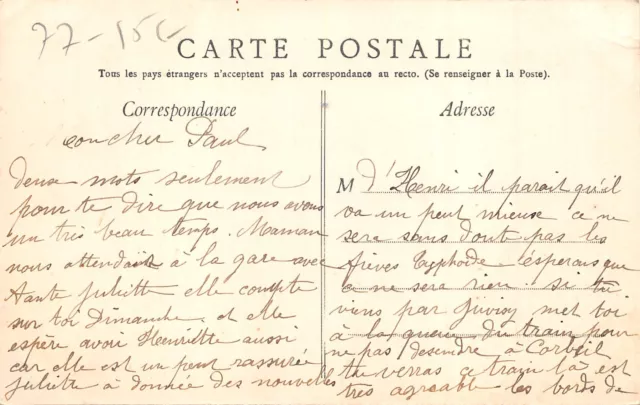 77-15c
CARTE POSTALE
Tous les pays étrangers n'acceptent pas la correspondance au recto. (Se renseigner à la Poste).
Correspondance
mon cher Paul
deux mots seulement
pour te dire que nous avons
un très beau temps. Maman
nous attendait à la gare avec
tante Juliette elle compte
sur toi Dimanche. et elle
espère avoir Henriette aussi
car elle est un peut rassurée
Juliette à donnée des nouvelles
Adresse
M d'Henri il parait qu'il
va un peut mieuse ce ne
sera sans doute pas les
fièves typhoïde esperons que
ce ne sera rien. si tu
viens par Juvisy met toi
à la queue du train pour
ne pas desendre à Corbeil
tu verras ce train là est
très agreable les bords de